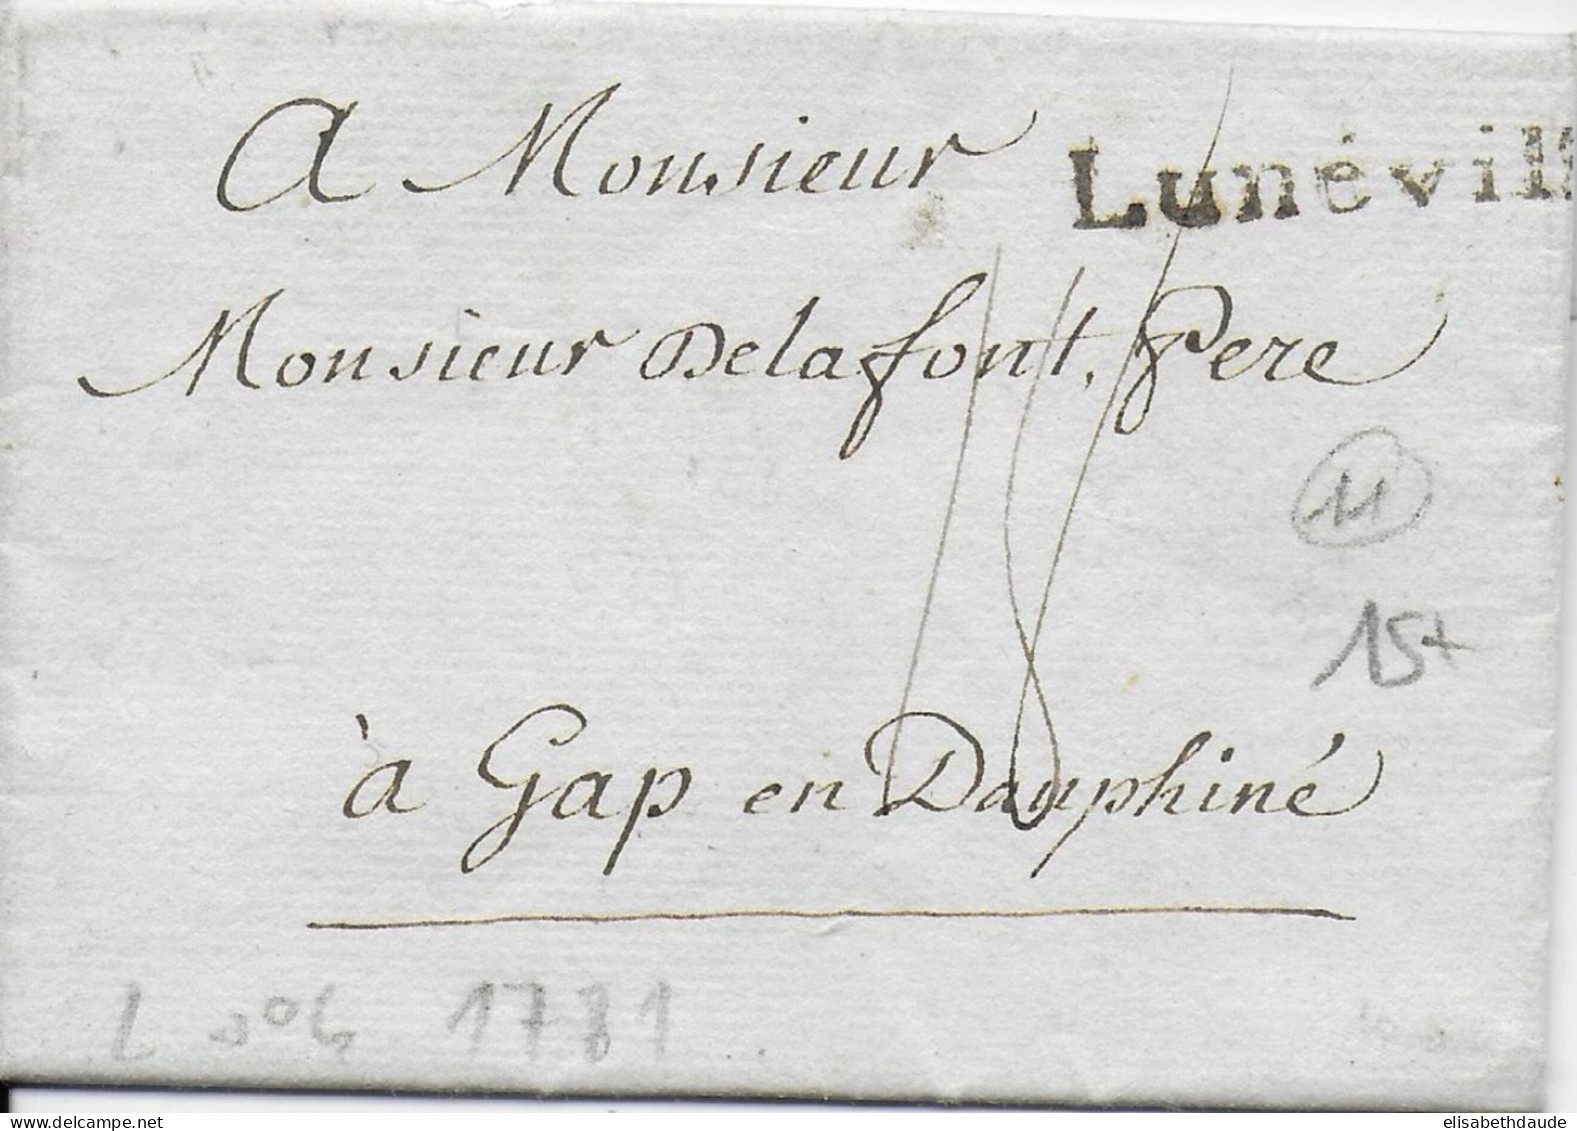 A Monsieur
Lunévill
Monsieur Delafont, Pere
18
11
15+
à Gap en Dauphiné
1781
elisabethdaude
delcampe.net